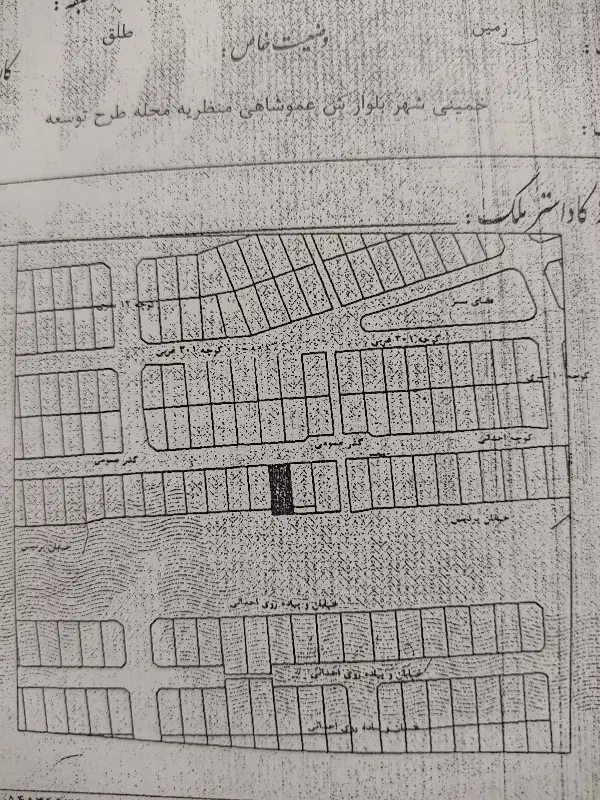 زمین
وضعیت خاص:
طلق
خمینی شهر بلوار بن عموشاهی منظریه محله طرح توسعه
کاداستر ملک:
فضای سبز
کوچه ۱۲
کوچه ۳۰۱ غربی
کوچه ۳۰۱ غربی
کوچه
کوچه احداثی
گذر عمومی
گذر عمومی
خیابان پردیس
خیابان پردیس
خیابان و پیاده روی احداثی
خیابان و پیاده روی احداثی
خیابان و پیاده روی احداثی